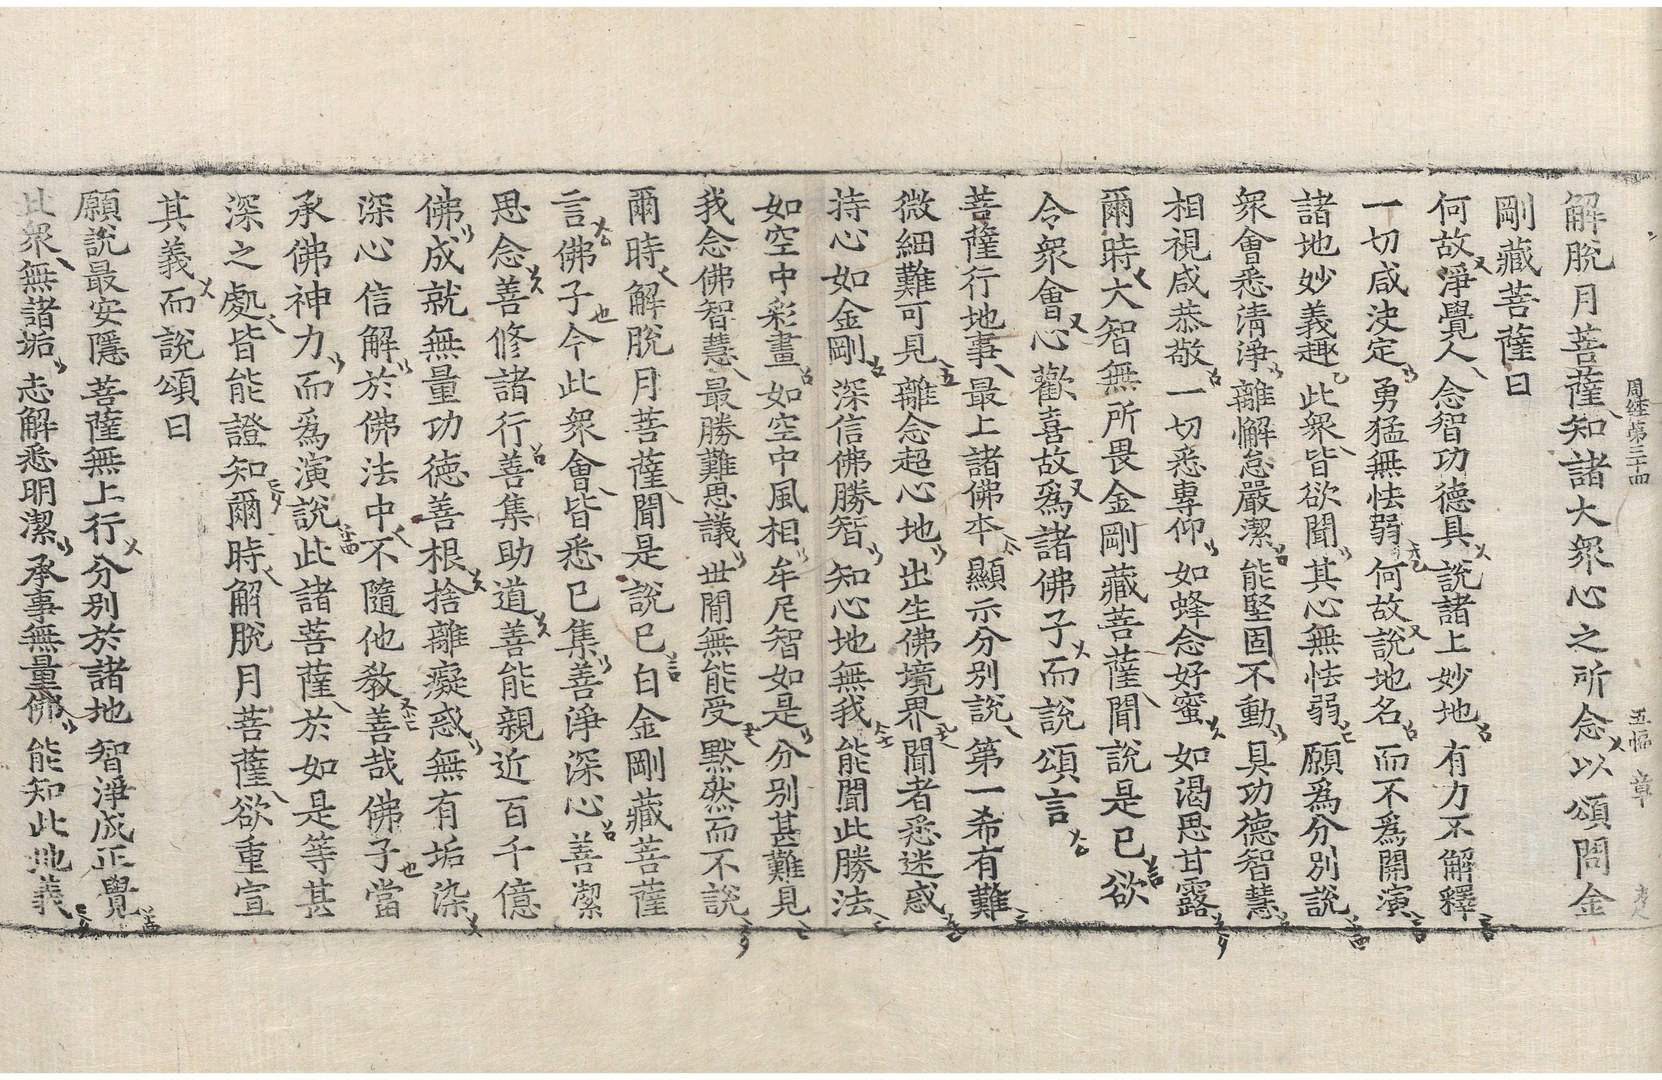 周經第三十四 五幅 章
解脫月菩薩知諸大衆心之所念以頌問金
剛藏菩薩曰
何故淨覺人 念智功德具 說諸上妙地 有力不解釋
一切咸決定 勇猛無怯弱 何故說地名 而不爲開演
諸地妙義趣 此衆皆欲聞 其心無怯弱 願爲分別說
衆會悉清淨 離懈怠嚴潔 能堅固不動 具功德智慧
相視咸恭敬 一切悉專仰 如蜂念好蜜 如渴思甘露
爾時大智無所畏金剛藏菩薩聞說是已欲
令衆會心歡喜故爲諸佛子而說頌言
菩薩行地事 最上諸佛本 顯示分別說 第一希有難
微細難可見 離念超心地 出生佛境界 聞者悉迷惑
持心如金剛 深信佛勝智 知心地無我 能聞此勝法
如空中彩畫 如空中風相 牟尼智如是 分別甚難見
我念佛智慧 最勝難思議 世間無能受 默然而不說
爾時解脫月菩薩聞是說已白金剛藏菩薩
言佛子今此衆會皆悉已集善淨深心善潔
思念善修諸行善集助道善能親近百千億
佛成就無量功德善根捨離癡惑無有垢染
深心信解於佛法中不隨他教善哉佛子當
承佛神力而爲演說此諸菩薩於如是等甚
深之處皆能證知爾時解脫月菩薩欲重宣
其義而說頌曰
願說最安隱 菩薩無上行 分別於諸地 智淨成正覺
此衆無諸垢 志解悉明潔 承事無量佛 能知此地義